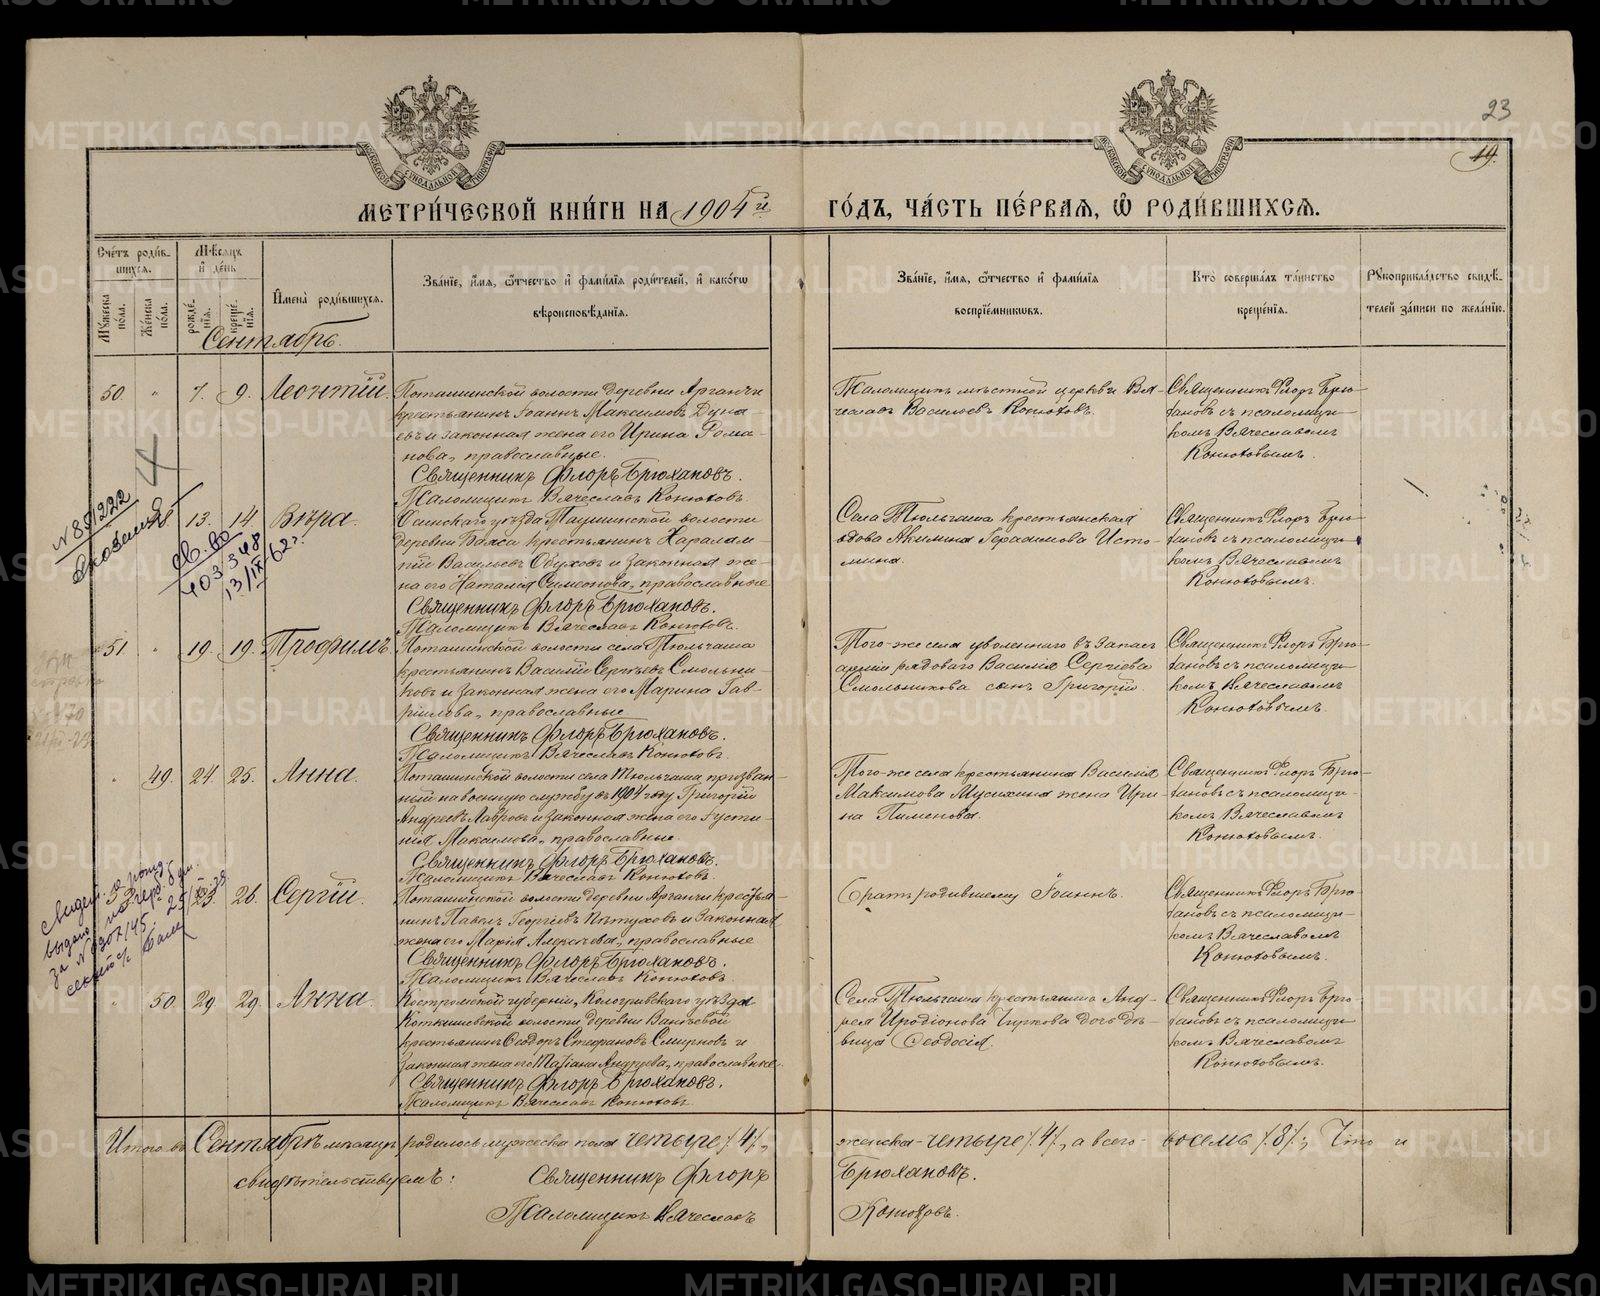 23
19.
МЕТРИ́ЧЕСКОЙ КНИ́ГИ НА 1904й ГО́ДЪ, ЧА́СТЬ ПЕ́РВАЯ, Ѡ РОДИ́ВШИХСЯ.
Сче́тъ роди́в-
шихся.
Мꙋ́жеска по́ла.
Же́нска по́ла.
Мѣ́сяцъ и де́нь
рожде́нїя.
креще́нїя.
И҆мена̀ роди́вшихся.
Зва́нїе, и҆́мя, ѻ҆́тчество и҆ фамі́лїя роди́телей, и҆ како́гѡ
вѣроисповѣ́данїя.
Зва́нїе, и҆́мя, ѻ҆́тчество и҆ фамі́лїя
воспрїе́мникѡвъ.
Кто̀ соверша́лъ та́инство
креще́нїя.
Рꙋкоприкла́дство свидѣ́-
телей за́писи по жела́нїю.
Сентябрь.
50. " 7. 9. Леонтій.
Поташинской волости деревни Арганчи
крестьянинъ Іоаннъ Максимовъ Дуна-
евъ и законная жена его Ирина Рома-
нова, православные.
Священникъ Флоръ Брюхановъ.
Псаломщикъ Вячеславъ Конюховъ.
Псаломщикъ мѣстной церкви Вя-
чеславъ Васильевъ Конюховъ.
Священникъ Флоръ Брю-
хановъ съ псаломщи-
комъ Вячеславомъ
Конюховымъ.
13. 14. Вѣра.
Осинскаго уѣзда Таушинской волости
деревни крестьянинъ Харалам-
пій Васильевъ Обуховъ и законная же-
на его Наталія Симеонова, православные
Священникъ Флоръ Брюхановъ.
Псаломщикъ Вячеславъ Конюховъ.
Села Тюльгаша крестьянская
вдова Акилина Герасимова Исто-
мина.
Священникъ Флоръ Брю-
хановъ съ псаломщи-
комъ Вячеславомъ
Конюховымъ.
№ 881222
Св-во
403348
13/IX 62 г.
51 " 19. 19. Трофимъ.
Поташинской волости села Тюльгаша
крестьянинъ Василій Сергѣевъ Смольни-
ковъ и законная жена его Марина Гав-
ріилова, православные
Священникъ Флоръ Брюхановъ.
Псаломщикъ Вячеславъ Конюховъ.
Того-же села уволеннаго въ запас
арміи рядоваго Василія Сергіева
Смольникова сынъ Григорій.
Священникъ Флоръ Брю-
хановъ съ псаломщи-
комъ Вячеславомъ
Конюховымъ.
" 49. 24. 25. Анна.
Поташинской волости села Тюльгаша, призван-
ный на военную службу въ 1904 году Григорій
Андреевъ Лавровъ и законная жена его Іусти-
нія Максимова, православные.
Священникъ Флоръ Брюхановъ.
Псаломщикъ Вячеславъ Конюховъ.
Того-же села крестьянина Василія
Максимова Мусихина жена Ири-
на Пименова.
Священникъ Флоръ Брю-
хановъ съ псаломщи-
комъ Вячеславомъ
Конюховымъ.
26. Сергій.
Поташинской волости деревни Арганчи крестья-
нинъ Павелъ Георгіевъ Пѣтуховъ и законная
жена его Марія Алексѣева, православные
Священникъ Флоръ Брюхановъ.
Псаломщикъ Вячеславъ Конюховъ.
Братъ родившемуся Іоаннъ.
Священникъ Флоръ Брю-
хановъ съ псаломщи-
комъ Вячеславомъ
Конюховымъ.
" 50. 29 29. Анна.
Костромской губерніи, Кологривскаго уѣзда
волости деревни
крестьянинъ Ѳеодоръ Стефановъ Смирновъ и
законная жена его Татіана Андреева, православные.
Священникъ Флоръ Брюхановъ.
Псаломщикъ Вячеславъ Конюховъ.
Села Тюльгаша крестьянина Анд-
рея Иродіонова Чуркова дочь дѣ-
вица Ѳеодосія.
Священникъ Флоръ Брю-
хановъ съ псаломщи-
комъ Вячеславомъ
Конюховымъ.
Итого въ Сентябрѣ мѣсяцѣ родилось мужеска пола четыре /4/, женска - четыре /4/, а всего - восемь /8/; Что и
свидѣтельствуемъ: Священникъ Флоръ Брюхановъ.
Псаломщикъ Вячеславъ Конюховъ.
METRIKI.GASO-URAL.RU